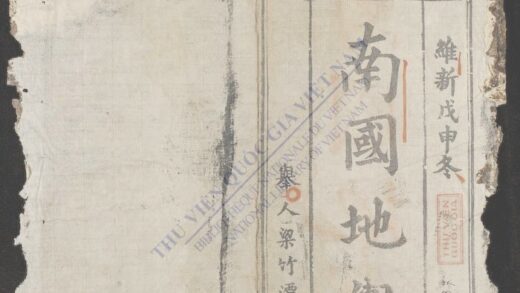 維新戊申冬
南國地
舉人梁竹潭
THƯ VIỆN QUỐC GIA VIỆT NAM
BIBLIOTHÈQUE NATIONALE DU VIETNAM
NATIONAL LIBRARY OF VIETNAM